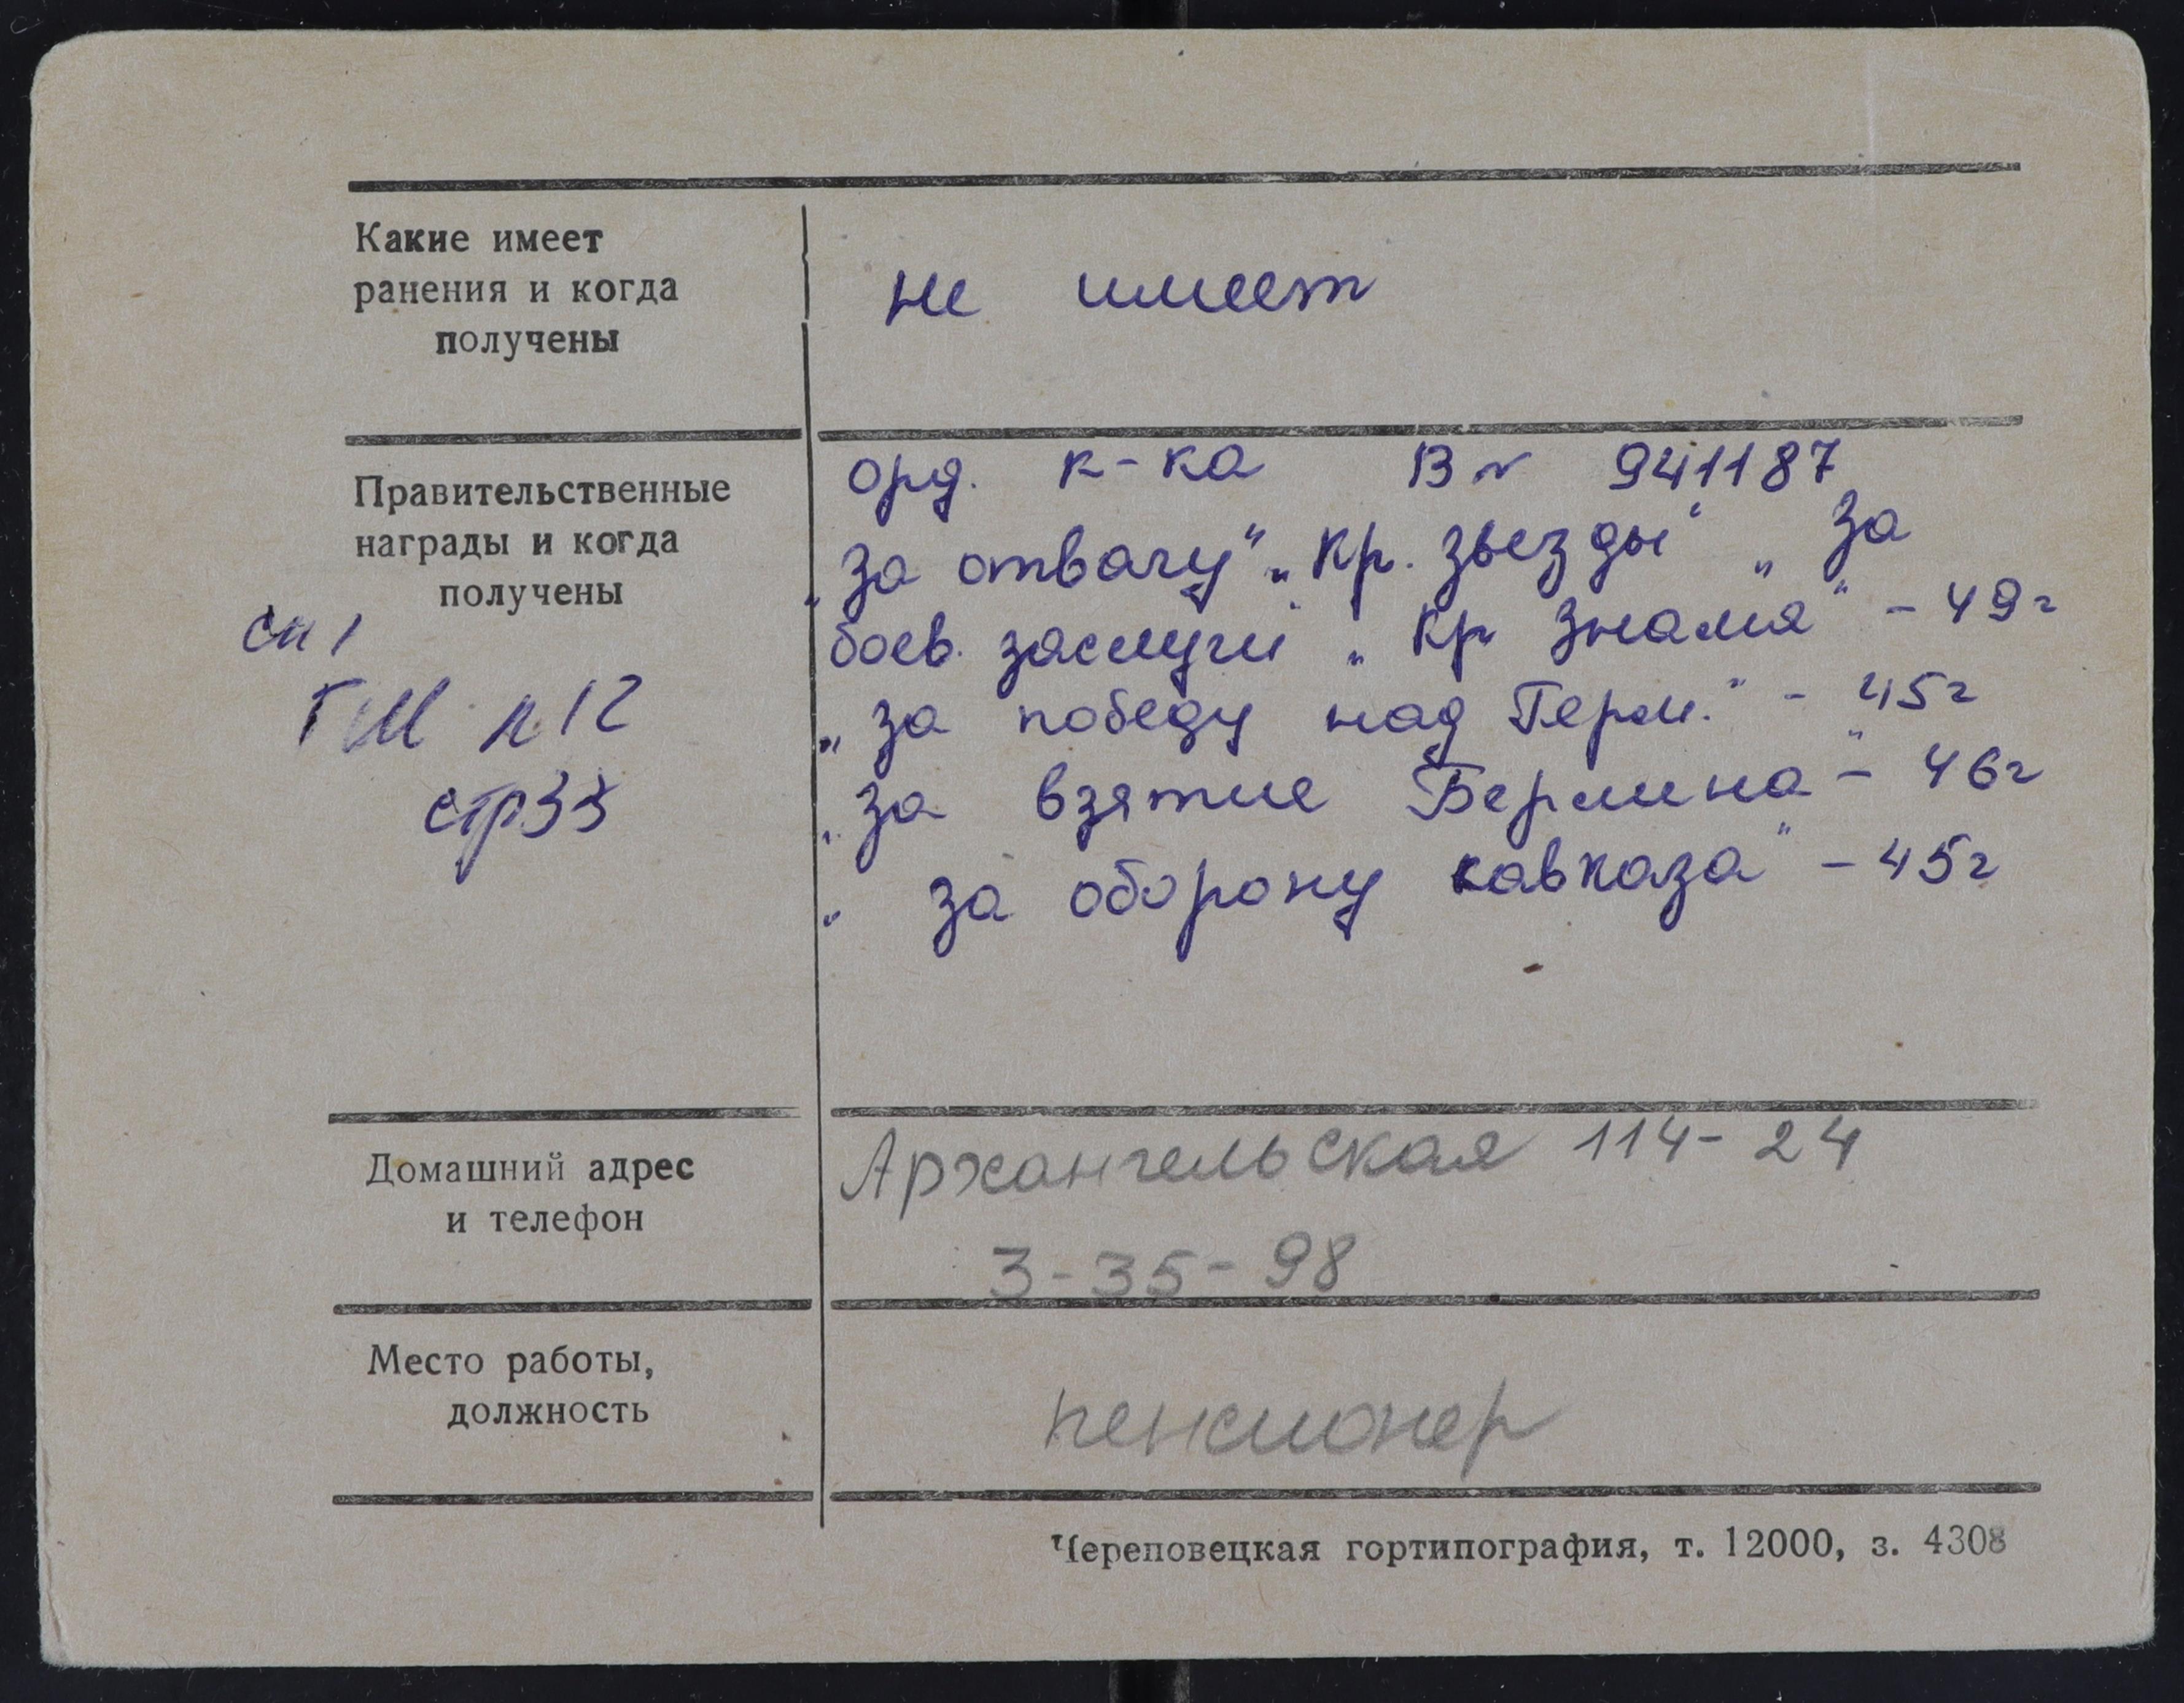 Какие имеет
ранения и когда
получены
не имеет
Правительственные
награды и когда
получены
орд. к-ка В № 941187
„за отвагу" „кр. звезды" „за
боев. заслуги" „кр Знамя" - 49г
„за победу над Герм." - 45г
„за взятие Берлина" - 46г
„за оборону кавказа" - 45г
сп 1
ГМ п 12
стр 33
Домашний адрес
и телефон
Архангельская 114-24
3-35-98
Место работы,
должность
пенсионер
Череповецкая гортипография, т. 12000, з. 4308